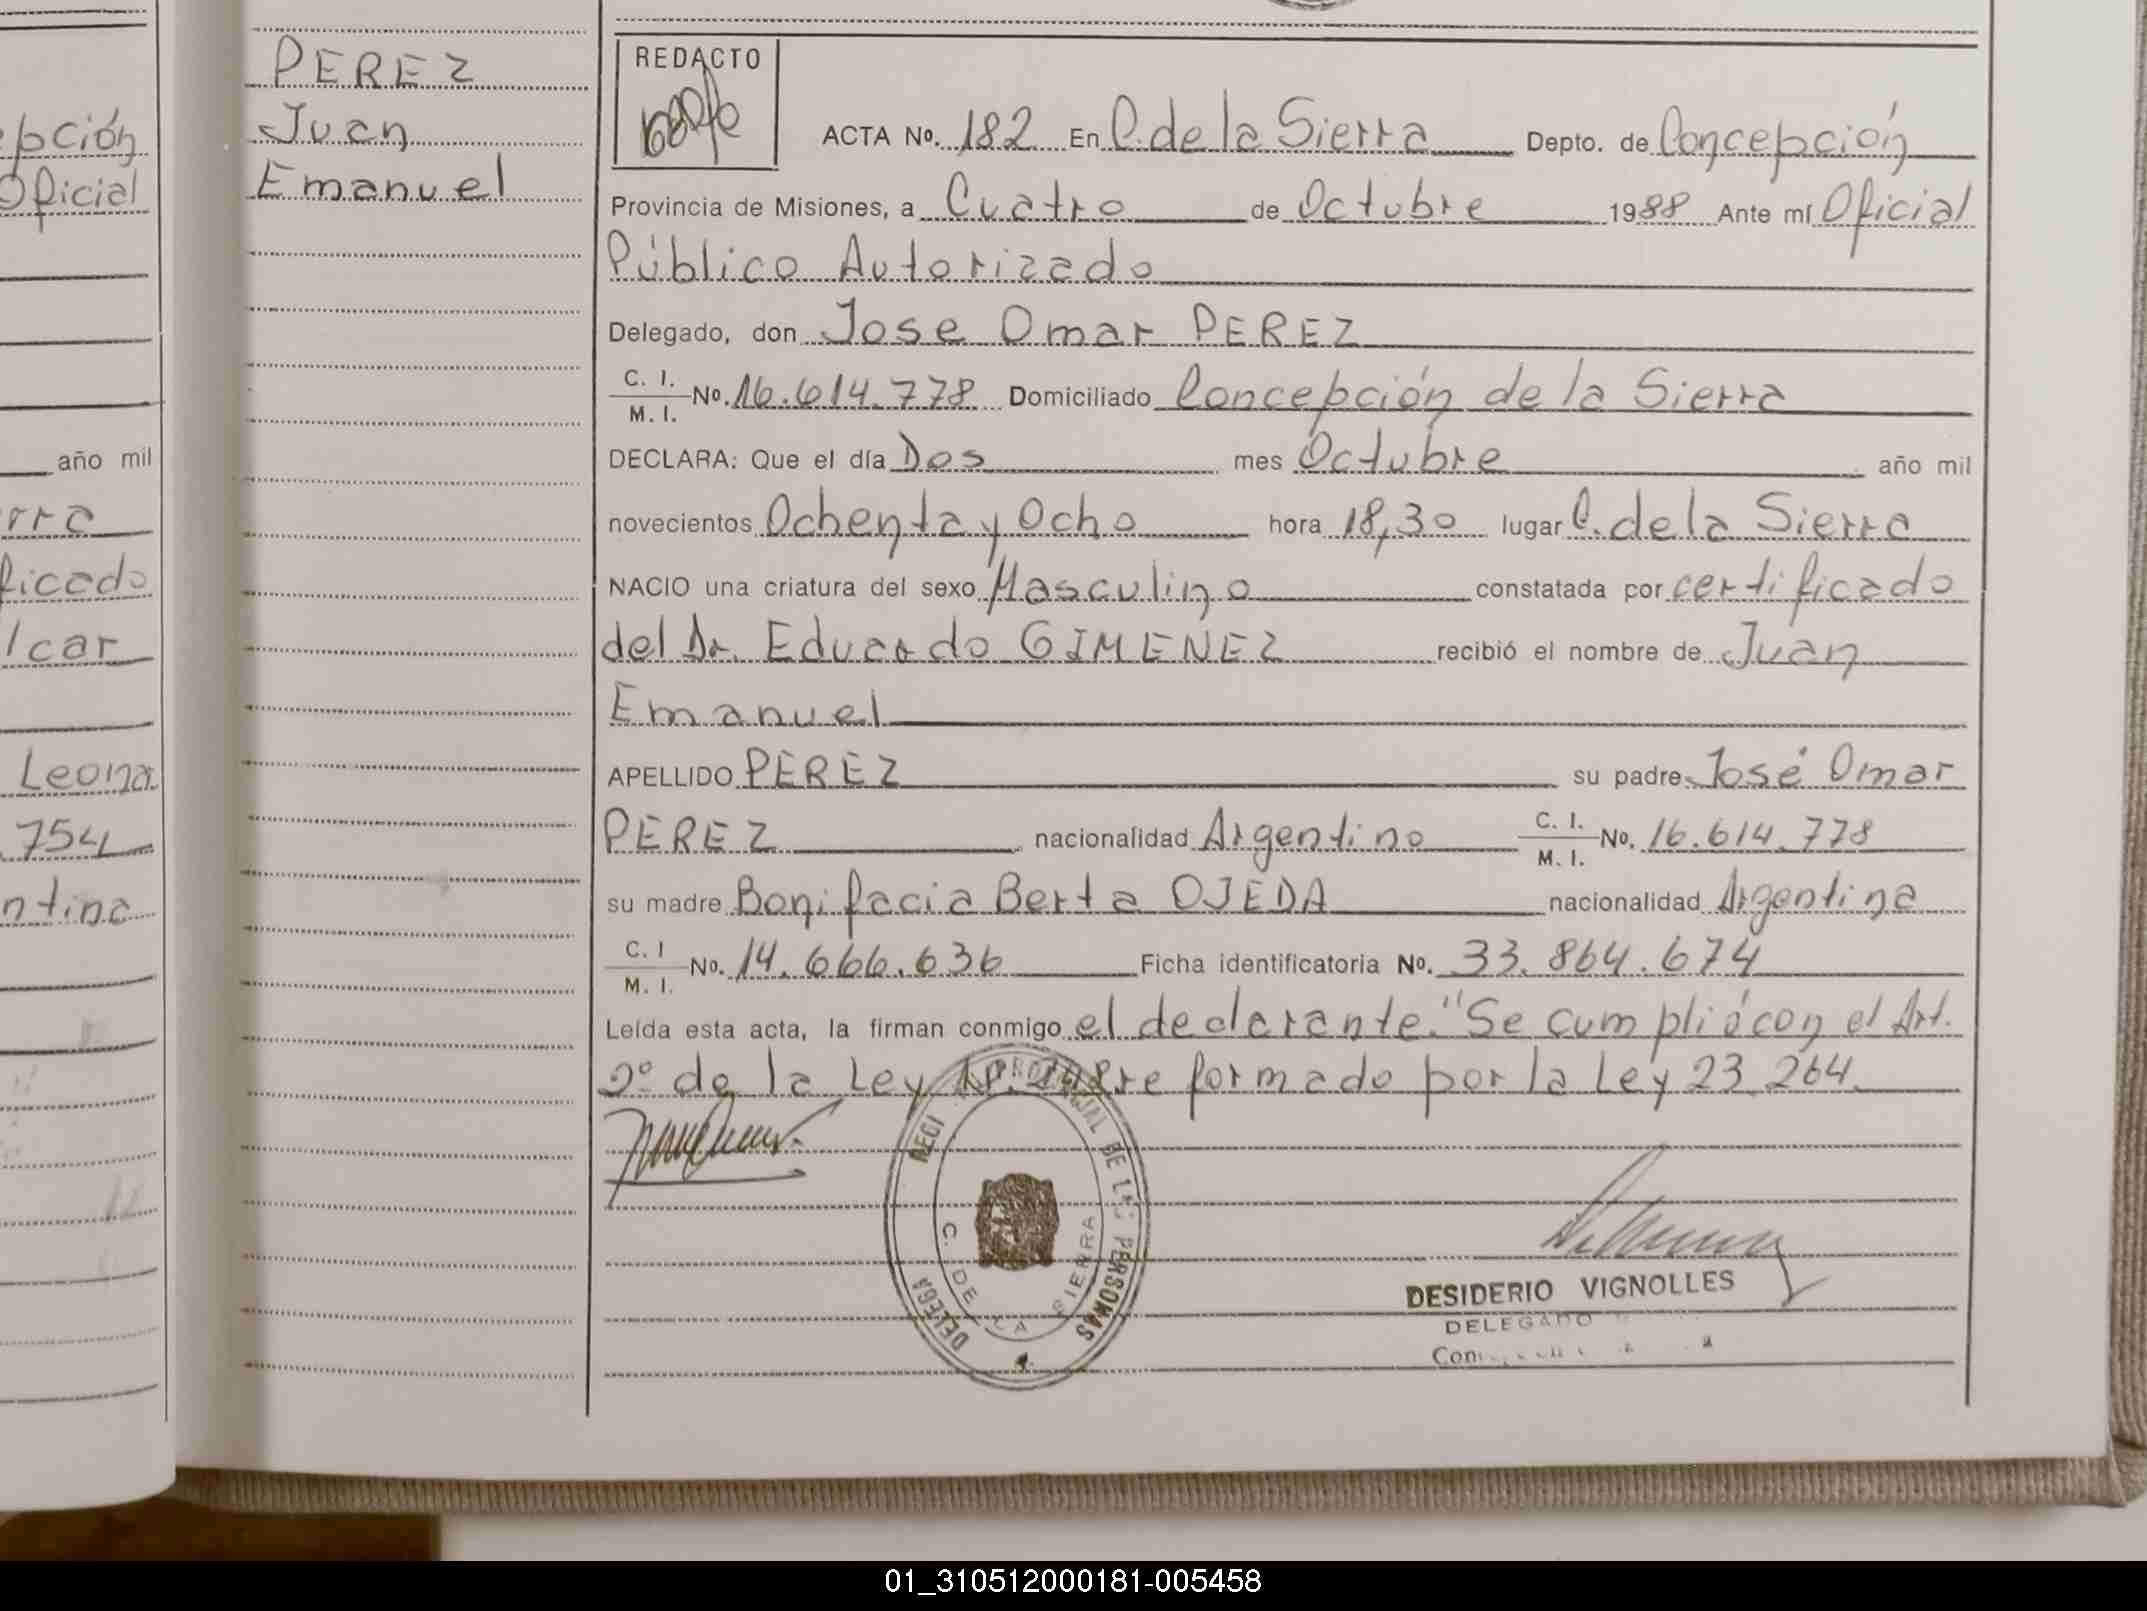 epción
Oficial
año mil
rra
ficado
lcar
Leona
754
ntina
PEREZ
Juan
Emanuel
REDACTO
ACTA Nº. 182 En C. de la Sierra Depto. de Concepción
Provincia de Misiones, a Cuatro de Octubre 1988 Ante mí Oficial
Público Autorizado
Delegado, don Jose Omar PEREZ
C. I. M. I. Nº. 16.614.778 Domiciliado Concepción de la Sierra
DECLARA: Que el día Dos mes Octubre año mil
novecientos Ochenta y Ocho hora 18,30 lugar C. de la Sierra
NACIO una criatura del sexo Masculino constatada por certificado
del Dr. Eduardo GIMENEZ recibió el nombre de Juan
Emanuel
APELLIDO PEREZ su padre José Omar
PEREZ nacionalidad Argentino C. I. M. I. Nº. 16.614.778
su madre Bonifacia Berta OJEDA nacionalidad Argentina
C. I M. I. Nº. 14.666.636 Ficha identificatoria Nº. 33.864.674
Leída esta acta, la firman conmigo el declarante. "Se cumplió con el Art.
2º de la Ley reformado por la Ley 23.264.
REGI PROVINCIAL DE LAS PERSONAS
DELEGA
C. DE LA SIERRA
DESIDERIO VIGNOLLES
DELEGADO
01_310512000181-005458